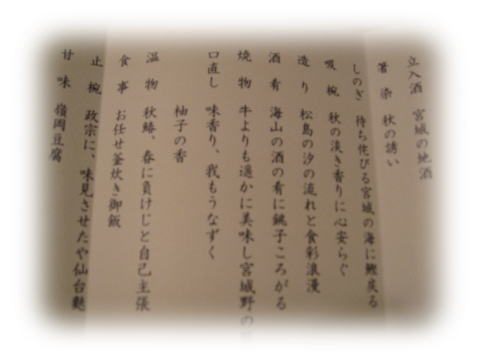 立入酒 宮城の地酒
箸染 秋の誘い
しのぎ 待ち侘びる宮城の海に鰹戻る
吸椀 秋の淡き香りに心安らぐ
造り 松島の汐の流れと食彩浪漫
酒肴 海山の酒の肴に銚子ころがる
焼物 牛よりも遥かに美味し宮城野の
口直し 味香り、我もうなずく
柚子の香
温物 秋鰆、春に負けじと自己主張
食事 お任せ釜炊き御飯
止椀 政宗に、味見させたや仙台麩
甘味 嶺岡豆腐